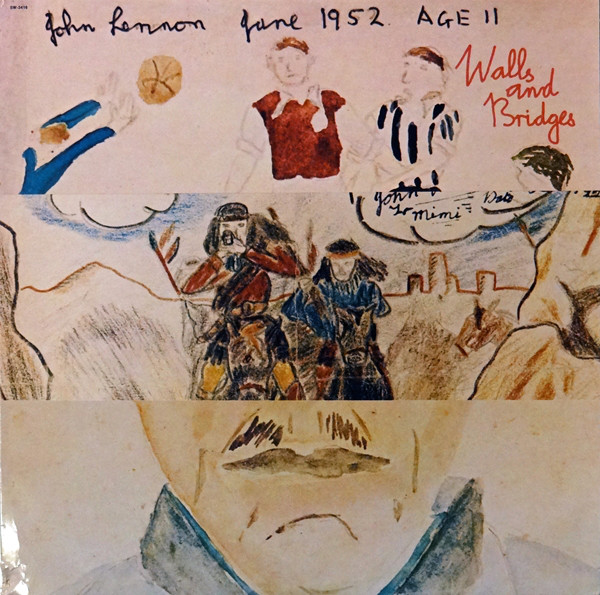 SW-3416
John Lennon June 1952. AGE 11
Walls
and
Bridges
John
To Mimi